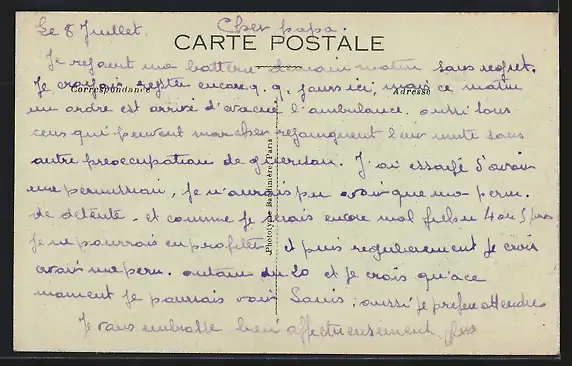 Le 8 Juillet. Cher papa.
CARTE POSTALE
Je rejoint ma batterie demain matin sans regret.
Je croyais rester encore q. q. jours ici, mais ce matin
Correspondance Adresse
un ordre est arrivé d'évacuer l'ambulance. aussi tous
ceux qui peuvent marcher rejoignent leur unité sans
autre preoccupation de guerison. J'ai essayé d'avoir
une permission, je n'aurais pu avoir que ma perm.
de detente. et comme je serais encore mal fichu 4 ou 5 jrs
je ne pourrais en profiter et puis regulierement je crois
avoir ma perm. autour du 20 et je crois qu'a ce
moment je pourrais voir aussi je prefere attendre
Je vous embrasse bien affectueusement
Phototypie Baudinière, Paris